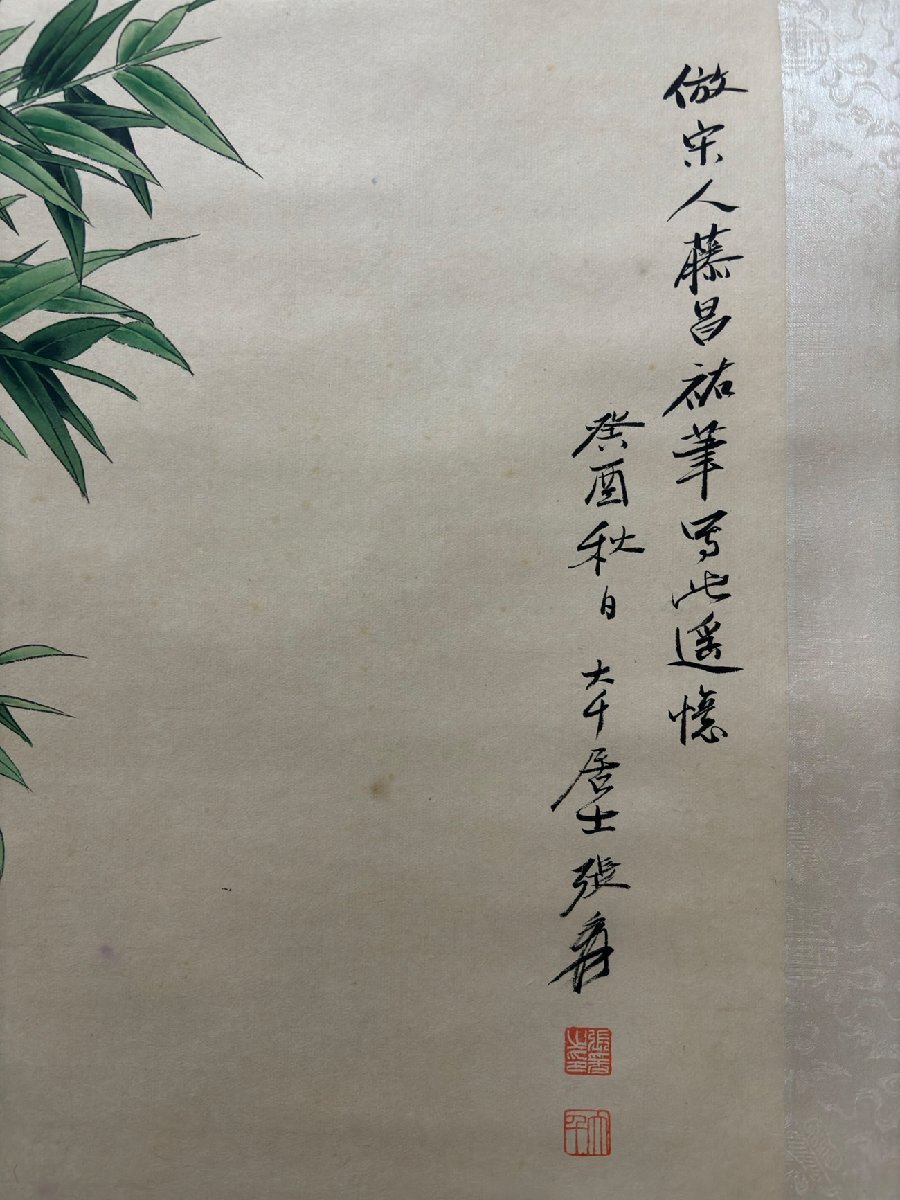 倣宋人藤昌祐筆写此遥憶
癸酉秋日 大千居士張爰
大千